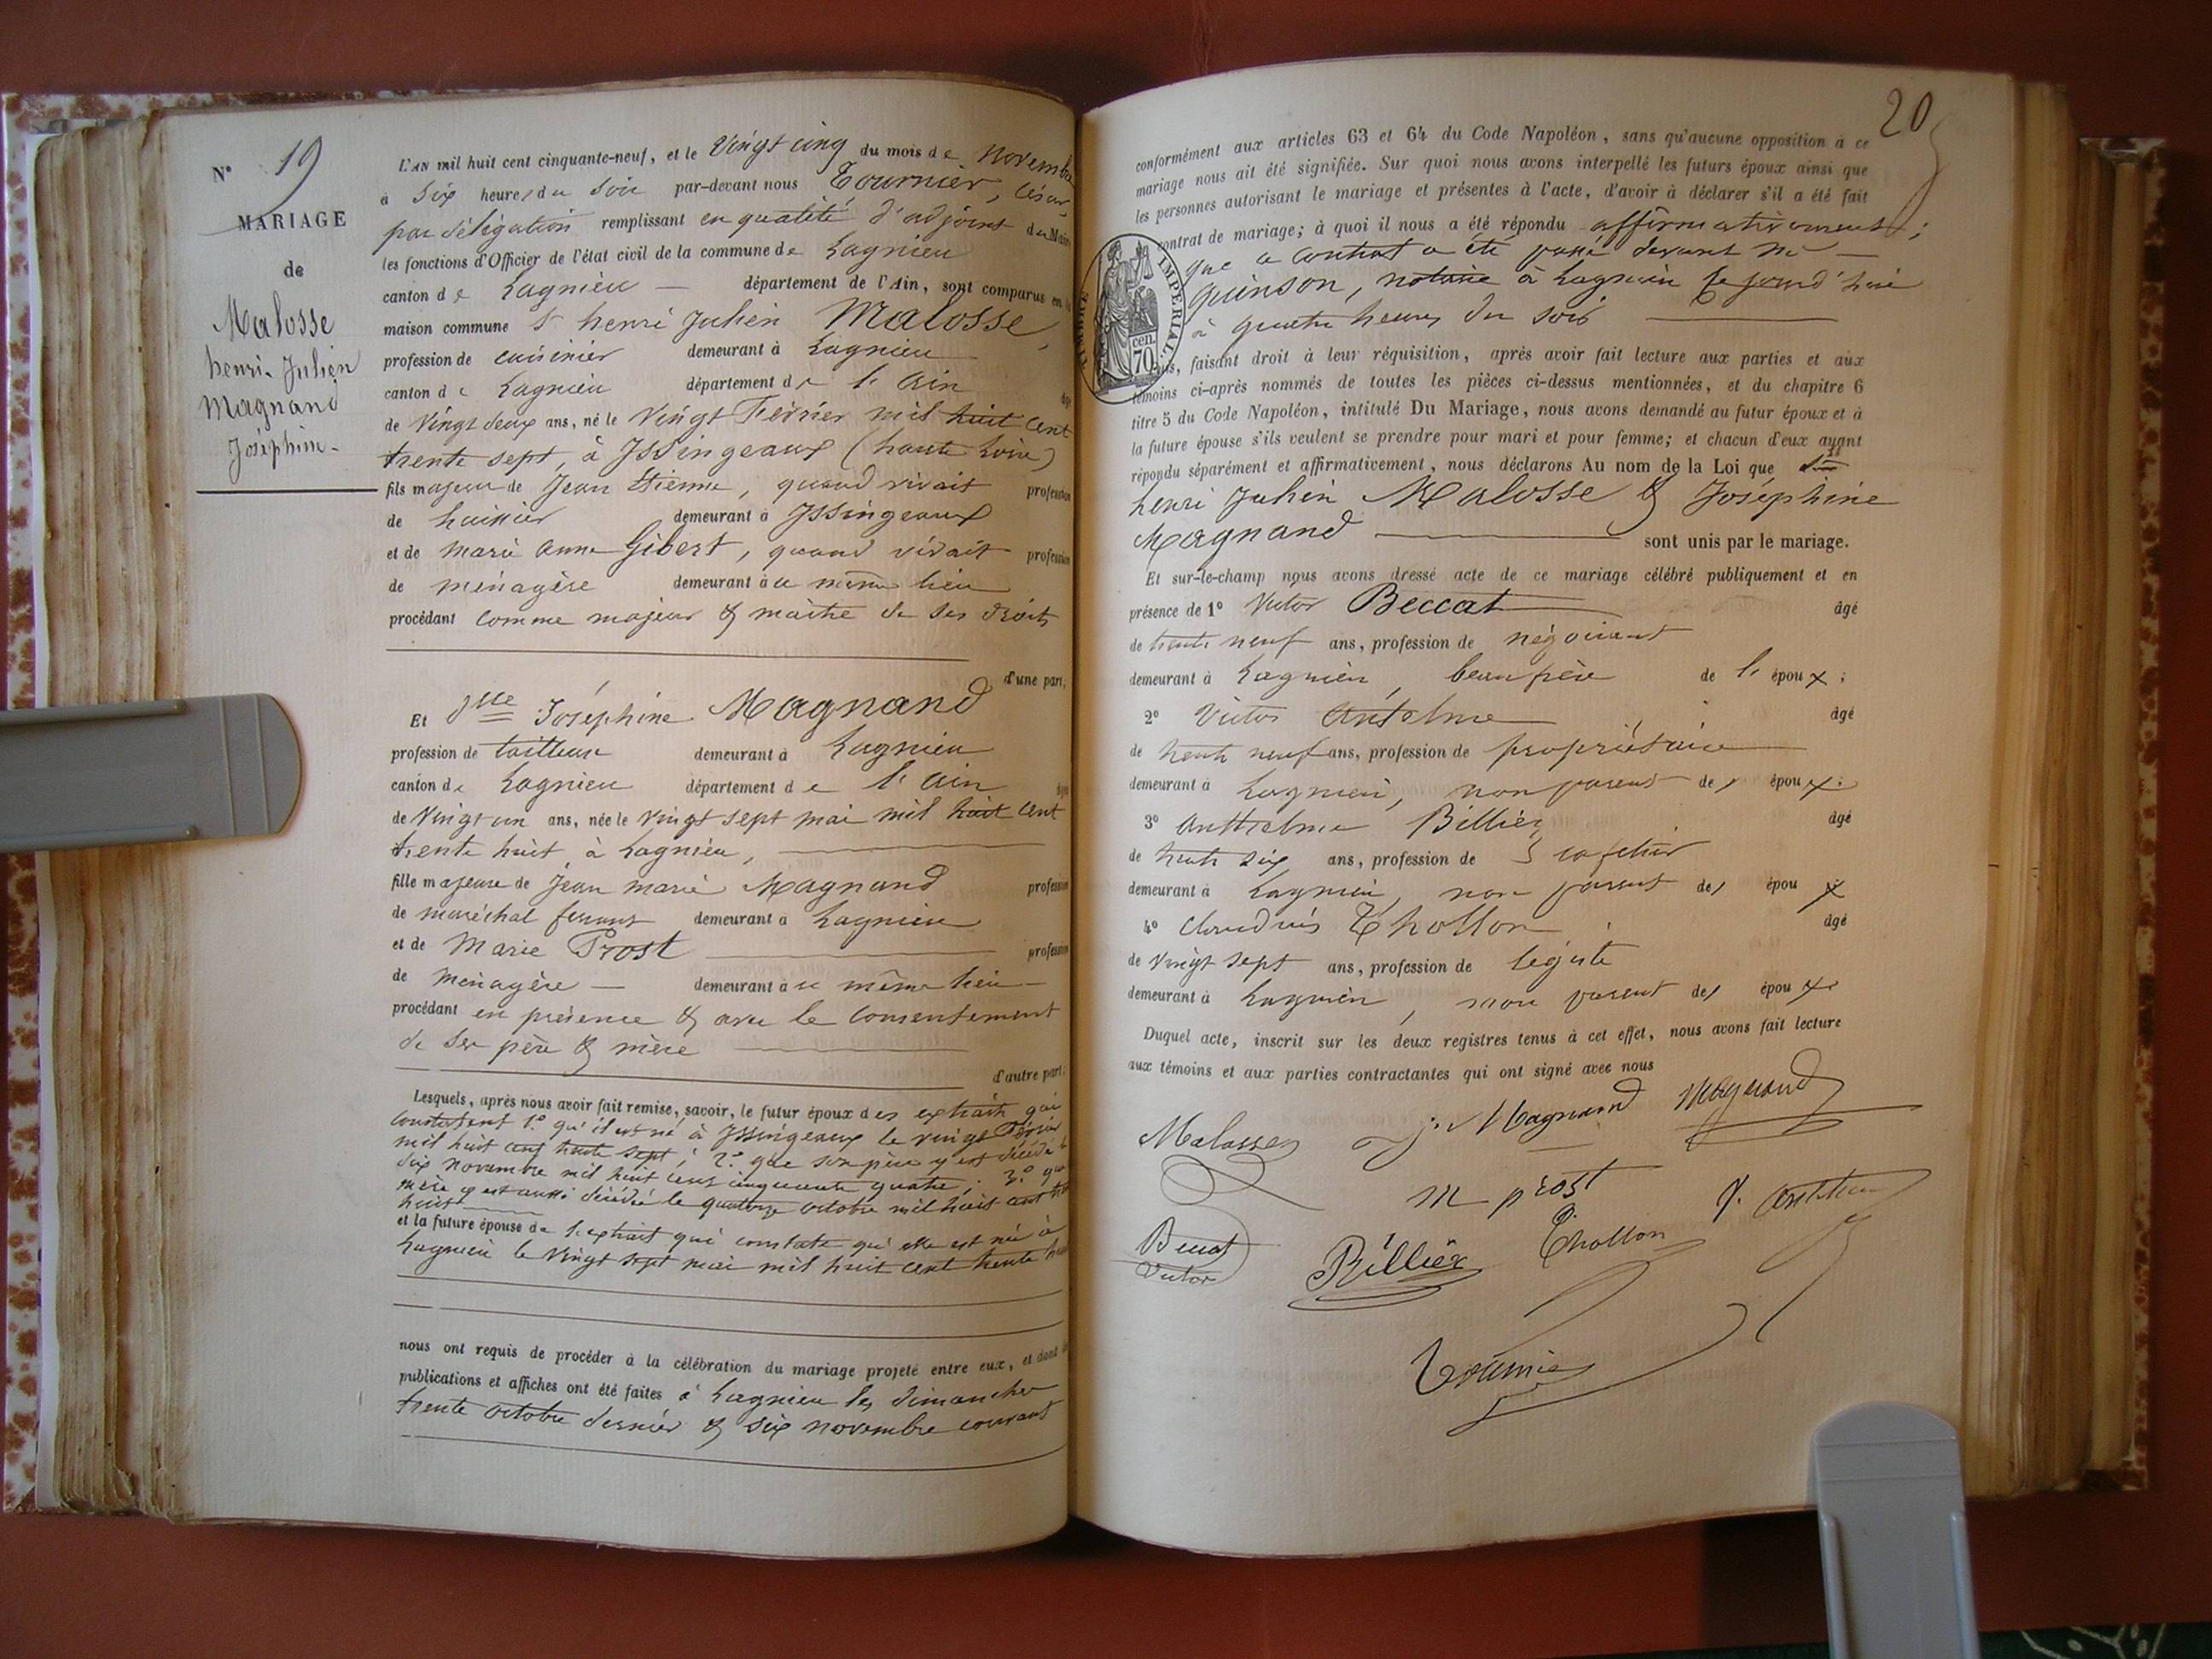 N° 19
MARIAGE
de
Malosse
henri-Julien
Magnand
Joséphine-
L'AN mil huit cent cinquante-neuf, et le Vingt cinq du mois de novembre
à six heures du soir par-devant nous Tournier, César,
par délégation remplissant en qualité d'adjoint du Maire
les fonctions d'Officier de l'état civil de la commune de Lagnieu
canton de Lagnieu département de l'Ain, sont comparus en la
maison commune Sr henri Julien Malosse,
profession de cuisinier demeurant à Lagnieu
canton de Lagnieu département de l'Ain âgé
de vingt deux ans, né le vingt Février mil huit cent
trente sept, à Issingeaux (haute Loire)
fils majeur de Jean Etienne, quand vivait profession
de huissier demeurant à Issingeaux
et de marie anne Gibert, quand vivait profession
de ménagère demeurant à ce même lieu
procédant comme majeur & maitre de ses droits
d'une part;
Et Dlle Joséphine Magnand
profession de tailleuse demeurant à Lagnieu
canton de Lagnieu département de l'Ain âgée
de vingt un ans, née le vingt sept mai mil huit cent
trente huit, à Lagnieu,
fille majeure de Jean marie Magnand profession
de maréchal ferrant demeurant à Lagnieu
et de Marie Prost profession
de ménagère demeurant à ce même lieu
procédant en présence & avec le consentement
de ses père & mère
d'autre part;
Lesquels, après nous avoir fait remise, savoir, le futur époux des extraits qui
constatent 1.° qu'il est né à Issingeaux le vingt Février
mil huit cent trente sept; 2.° que son père y est décédé le
six novembre mil huit cent cinquante quatre; 3.° que
mère y est aussi décédée le quatorze octobre mil huit cent trente
huit
et la future épouse de l'extrait qui constate qu'elle est née à
Lagnieu le vingt sept mai mil huit cent trente huit
nous ont requis de procéder à la célébration du mariage projeté entre eux, et dont les
publications et affiches ont été faites à Lagnieu les dimanches
trente octobre dernier & six novembre courant
20
conformément aux articles 63 et 64 du Code Napoléon, sans qu'aucune opposition à ce
mariage nous ait été signifiée. Sur quoi nous avons interpellé les futurs époux ainsi que
les personnes autorisant le mariage et présentes à l'acte, d'avoir à déclarer s'il a été fait
contrat de mariage; à quoi il nous a été répondu affirmativement;
que ce contrat a été passé devant Me
quinson, notaire à Lagnieu ce jourd'hui
à quatre heures du soir
TIMBRE IMPERIAL
70 cen.
Nous, faisant droit à leur réquisition, après avoir fait lecture aux parties et aux
témoins ci-après nommés de toutes les pièces ci-dessus mentionnées, et du chapitre 6
titre 5 du Code Napoléon, intitulé Du Mariage, nous avons demandé au futur époux et à
la future épouse s'ils veulent se prendre pour mari et pour femme; et chacun d'eux ayant
répondu séparément et affirmativement, nous déclarons Au nom de la Loi que
henri Julien Malosse & Joséphine
Magnand sont unis par le mariage.
Et sur-le-champ nous avons dressé acte de ce mariage célébré publiquement et en
présence de 1° Victor Beccat âgé
de trente neuf ans, profession de négociant
demeurant à Lagnieu, beau frère de l'époux;
2° Victor Antelme âgé
de trente neuf ans, profession de propriétaire
demeurant à Lagnieu, non parent des époux;
3° Anthelme Billiex âgé
de trente six ans, profession de cafetier
demeurant à Lagnieu, non parent des époux
4° Claudius Thollon âgé
de vingt sept ans, profession de légiste
demeurant à Lagnieu, non parent des époux.
Duquel acte, inscrit sur les deux registres tenus à cet effet, nous avons fait lecture
aux témoins et aux parties contractantes qui ont signé avec nous
Malosse j. Magnand Magnand
m prost V. Antelme
Beccat
Victor
Billiex Thollon
Tournier